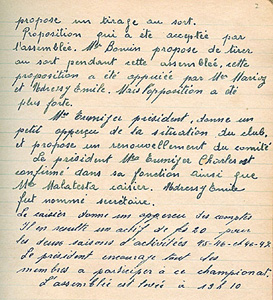 propose un tirage au sort.
Proposition qui a été acceptée par
l'assemblée. Mr Bonin propose de tirer
au sort pendant cette assemblée, cette
proposition a été appuiée par Mr
et Adressy Emile. Mais l'opposition a été
plus forte.
Mr Eunijer président, donne un
petit apperçu de la situation du club,
et propose un renouvellement du comité
Le président Mr Eunijer Charles est
confirmé dans sa fonction ainsi que
Mr Malatesta caisier. Adressy Emile
fut nommé secrétaire.
Le caisier donne un apperçu des comptes
Il en resulte un actif de fs 20 pour
les deux saisons d'activitées 45-46-et 46-47
Le président encourage tous les
membres a participer à ce championat.
L'assemblée est levée à 13h10